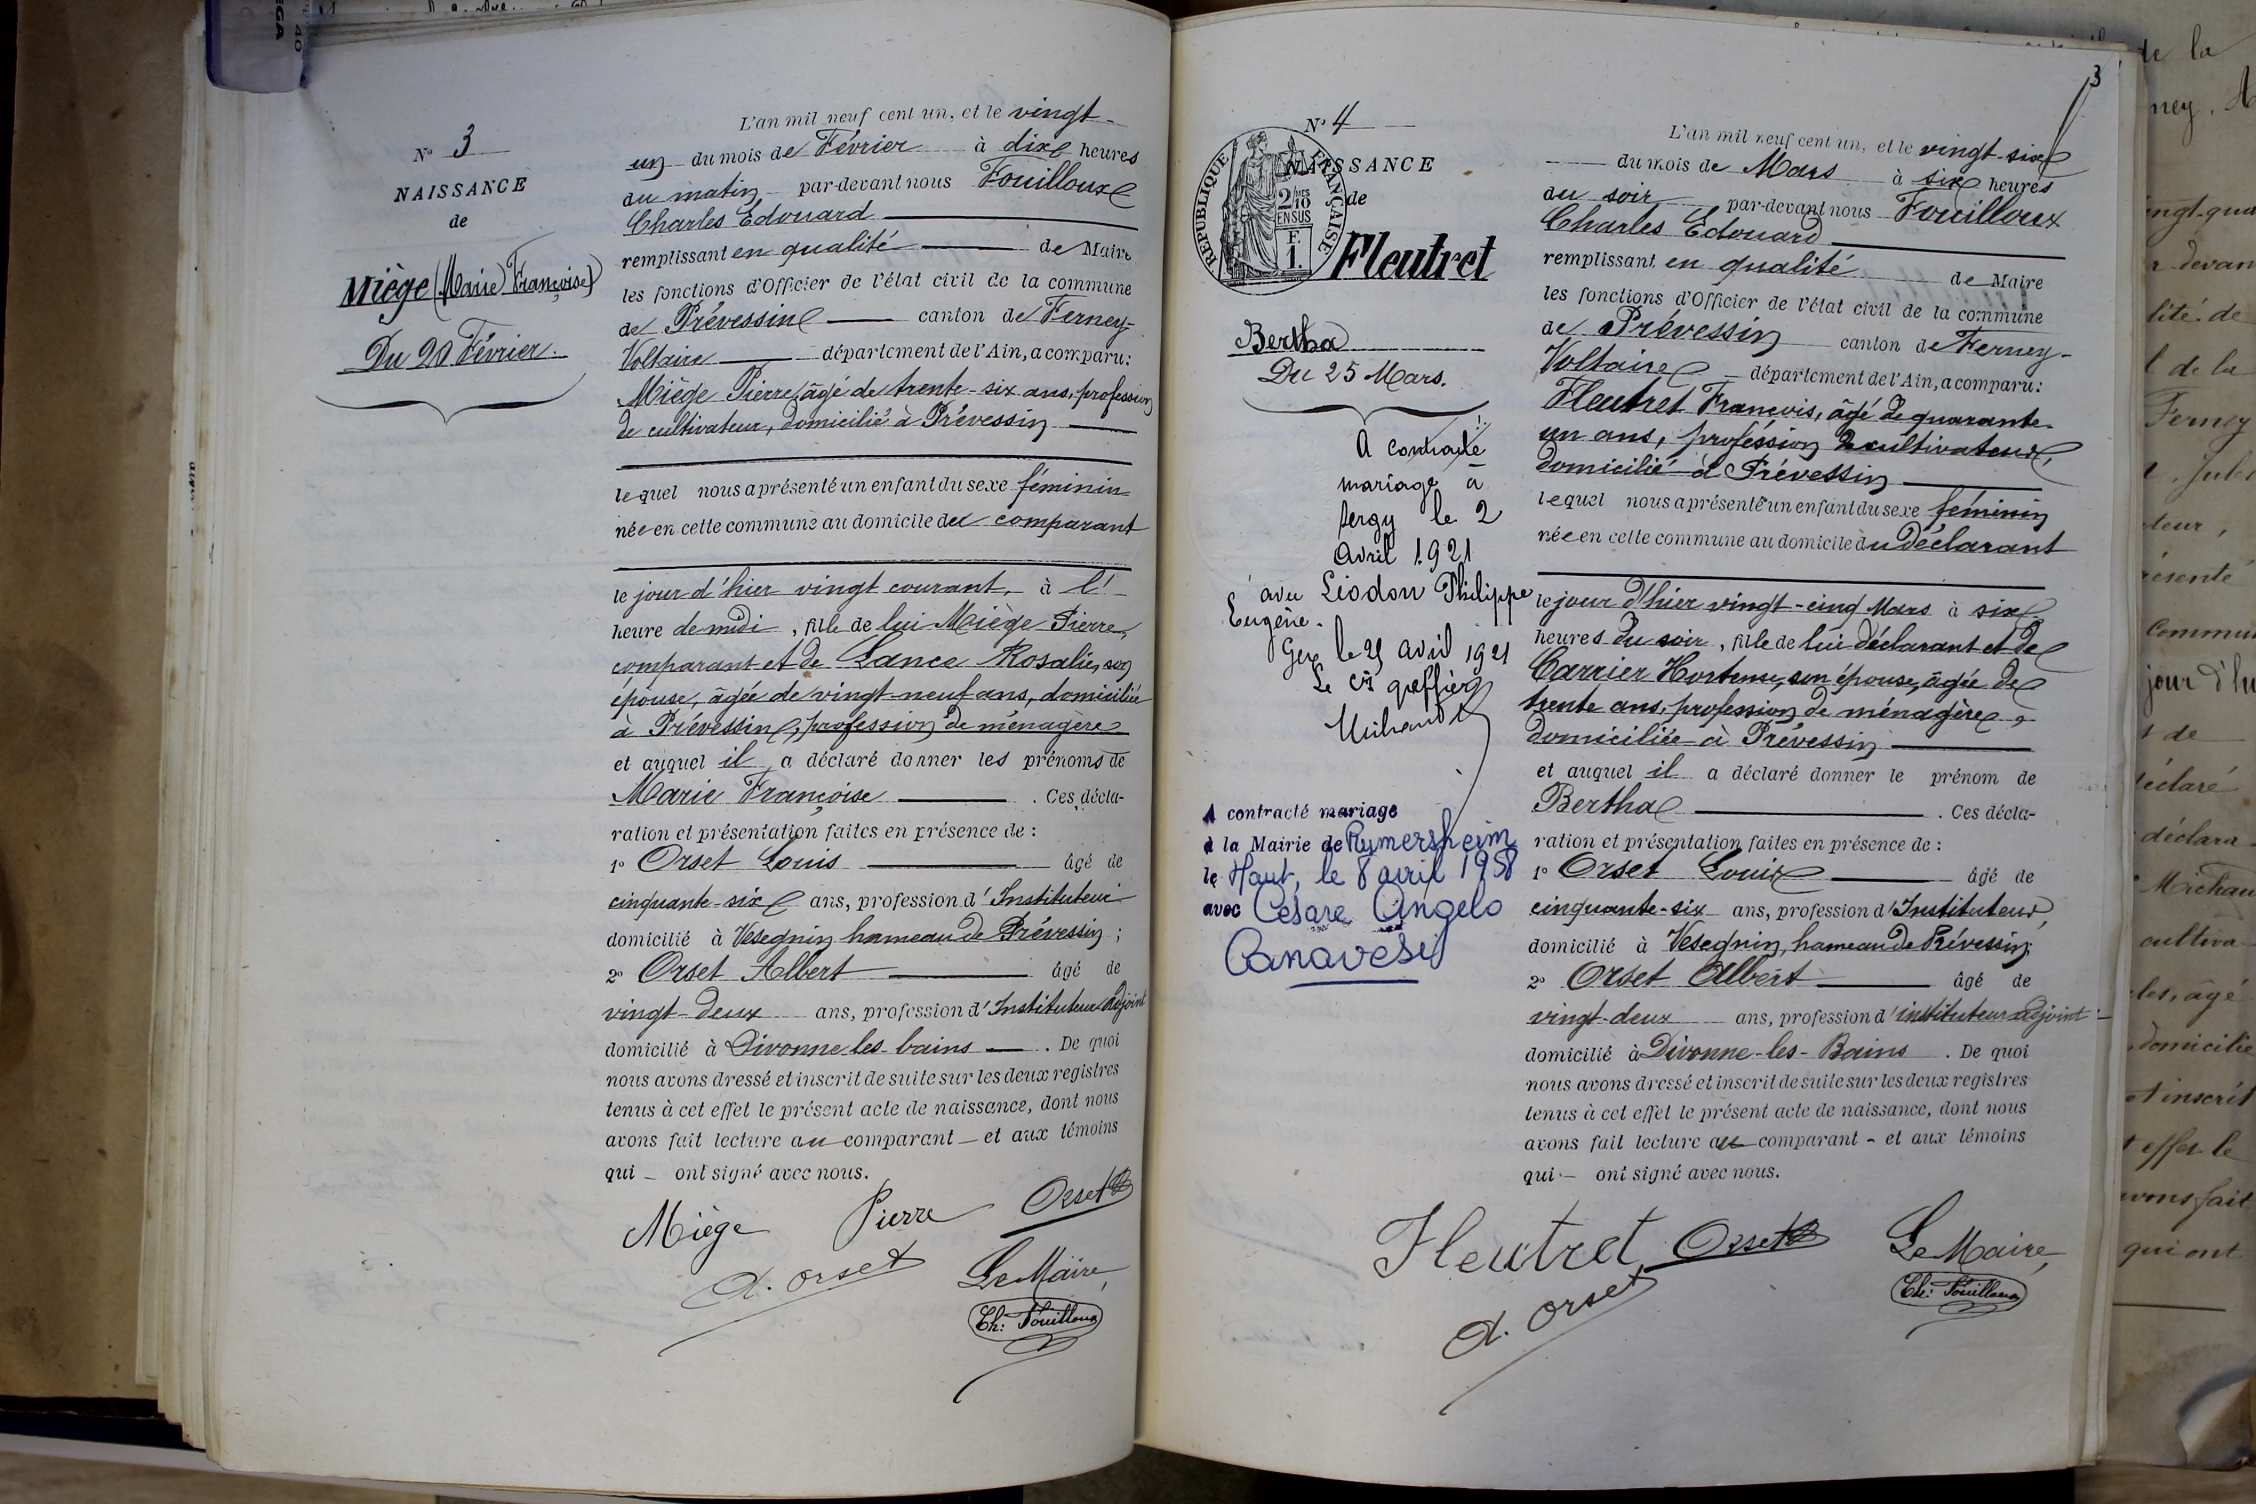 N° 3
NAISSANCE
de
Miège (Marie Françoise)
Du 20 Février.
L'an mil neuf cent un, et le vingt-
un du mois de Février à dix heures
du matin par-devant nous Fouilloux
Charles Edouard
remplissant en qualité de Maire
les fonctions d'Officier de l'état civil de la commune
de Prévessin canton de Ferney-
Voltaire département de l'Ain, a comparu:
Miège Pierre, âgé de trente-six ans, profession
de cultivateur, domicilié à Prévessin
lequel nous a présenté un enfant du sexe féminin
née en cette commune au domicile du comparant
le jour d'hier vingt courant, à l'
heure de midi, fille de lui Miège Pierre,
comparant et de Lance Rosalie, son
épouse, âgée de vingt-neuf ans, domiciliée
à Prévessin, profession de ménagère
et auquel il a déclaré donner les prénoms de
Marie Françoise . Ces décla-
ration et présentation faites en présence de :
1° Orset Louis âgé de
cinquante-six ans, profession d'Instituteur
domicilié à Vesegnin hameau de Prévessin ;
2° Orset Albert âgé de
vingt-deux ans, profession d'Instituteur adjoint
domicilié à Divonne les-bains . De quoi
nous avons dressé et inscrit de suite sur les deux registres
tenus à cet effet le présent acte de naissance, dont nous
avons fait lecture au comparant et aux témoins
qui ont signé avec nous.
Miège Pierre Orset
A. Orset Le Maire,
Ch: Fouilloux
3
N° 4
NAISSANCE
de
RÉPUBLIQUE FRANÇAISE
2/10
EN SUS
F.
1.
Fleutret
Bertha
Du 25 Mars.
A contracté
mariage à
Sergy le 2
Avril 1921
avec Liodon Philippe
Eugène.
Gex le 25 avril 1921
Le Cis greffier
A contracté mariage
à la Mairie de Rymersheim
le Haut, le 8 avril 1958
avec Césare Angelo
Canavesi
L'an mil neuf cent un, et le vingt-six
du mois de Mars à six heures
du soir par-devant nous Fouilloux
Charles Edouard
remplissant en qualité de Maire
les fonctions d'Officier de l'état civil de la commune
de Prévessin canton de Ferney-
Voltaire département de l'Ain, a comparu:
Fleutret François, âgé de quarante-
un ans, profession de cultivateur,
domicilié à Prévessin
lequel nous a présenté un enfant du sexe féminin
née en cette commune au domicile du déclarant
le jour d'hier vingt-cinq Mars à six
heures du soir, fille de lui déclarant et de
Carrier Hortense, son épouse, âgée de
trente ans, profession de ménagère,
domiciliée à Prévessin
et auquel il a déclaré donner le prénom de
Bertha . Ces décla-
ration et présentation faites en présence de :
1° Orset Louis âgé de
cinquante-six ans, profession d'Instituteur,
domicilié à Vesegnin, hameau de Prévessin;
2° Orset Albert âgé de
vingt-deux ans, profession d'instituteur adjoint
domicilié à Divonne-les-Bains . De quoi
nous avons dressé et inscrit de suite sur les deux registres
tenus à cet effet le présent acte de naissance, dont nous
avons fait lecture au comparant - et aux témoins
qui - ont signé avec nous.
Fleutret Orset Le Maire,
A. Orset Ch: Fouilloux